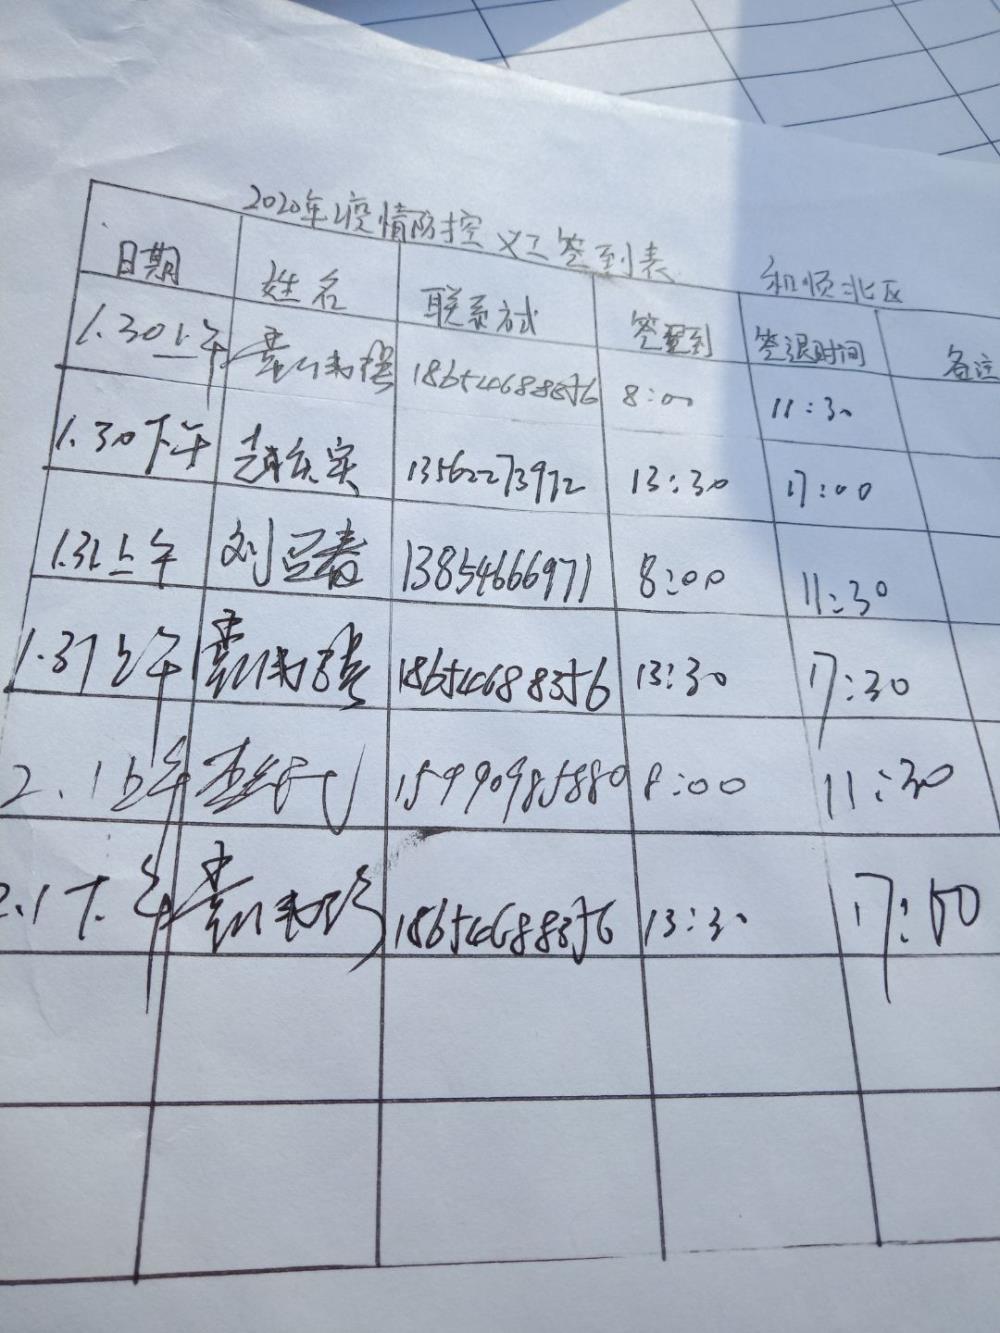 2020年疫情防控 义工签到表 和顺北区
日期 姓名 联系方式 签到 签退时间 备注
1.30上午 18654688356 8:00 11:30
1.30下午 13562273972 13:30 17:00
1.31上午 刘 春 13854666971 8:00 11:30
1.31上午 18654688356 13:30 17:30
2.1上午 15990985880 8:00 11:30
2.1下午 18654688356 13:30 17:00